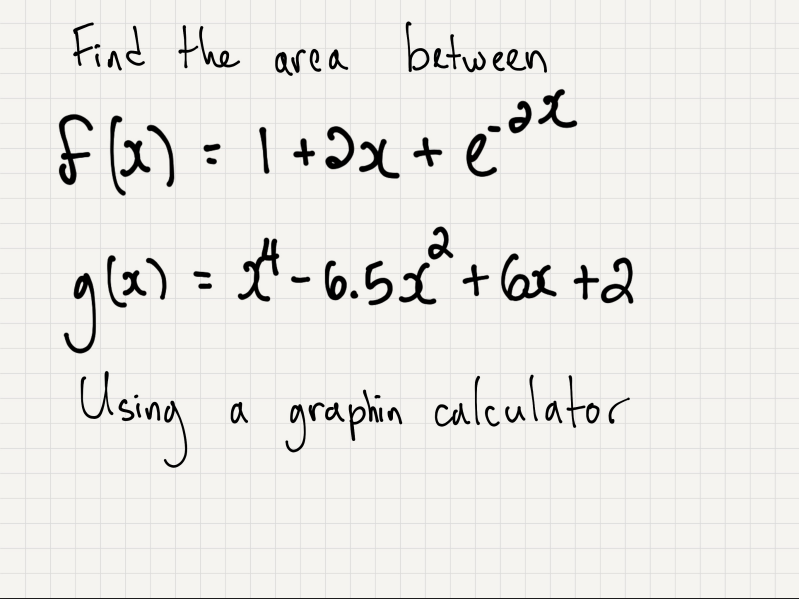 Find the area between
f(x) = 1 + 2x + e^-2x
g(x) = x^4 - 6.5x^2 + 6x + 2
Using a graphin calculator